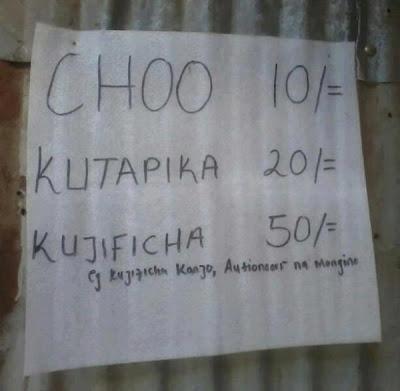 CHOO 10/=
KUTAPIKA 20/=
KUJIFICHA 50/=
eg kujificha Kanjo, Autioneer na Mengine